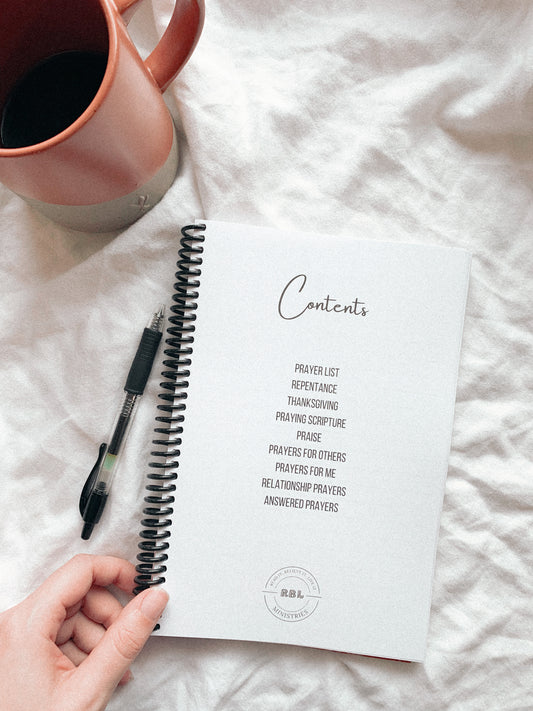 Contents
PRAYER LIST
REPENTANCE
THANKSGIVING
PRAYING SCRIPTURE
PRAISE
PRAYERS FOR OTHERS
PRAYERS FOR ME
RELATIONSHIP PRAYERS
ANSWERED PRAYERS
RBL
MINISTRIES